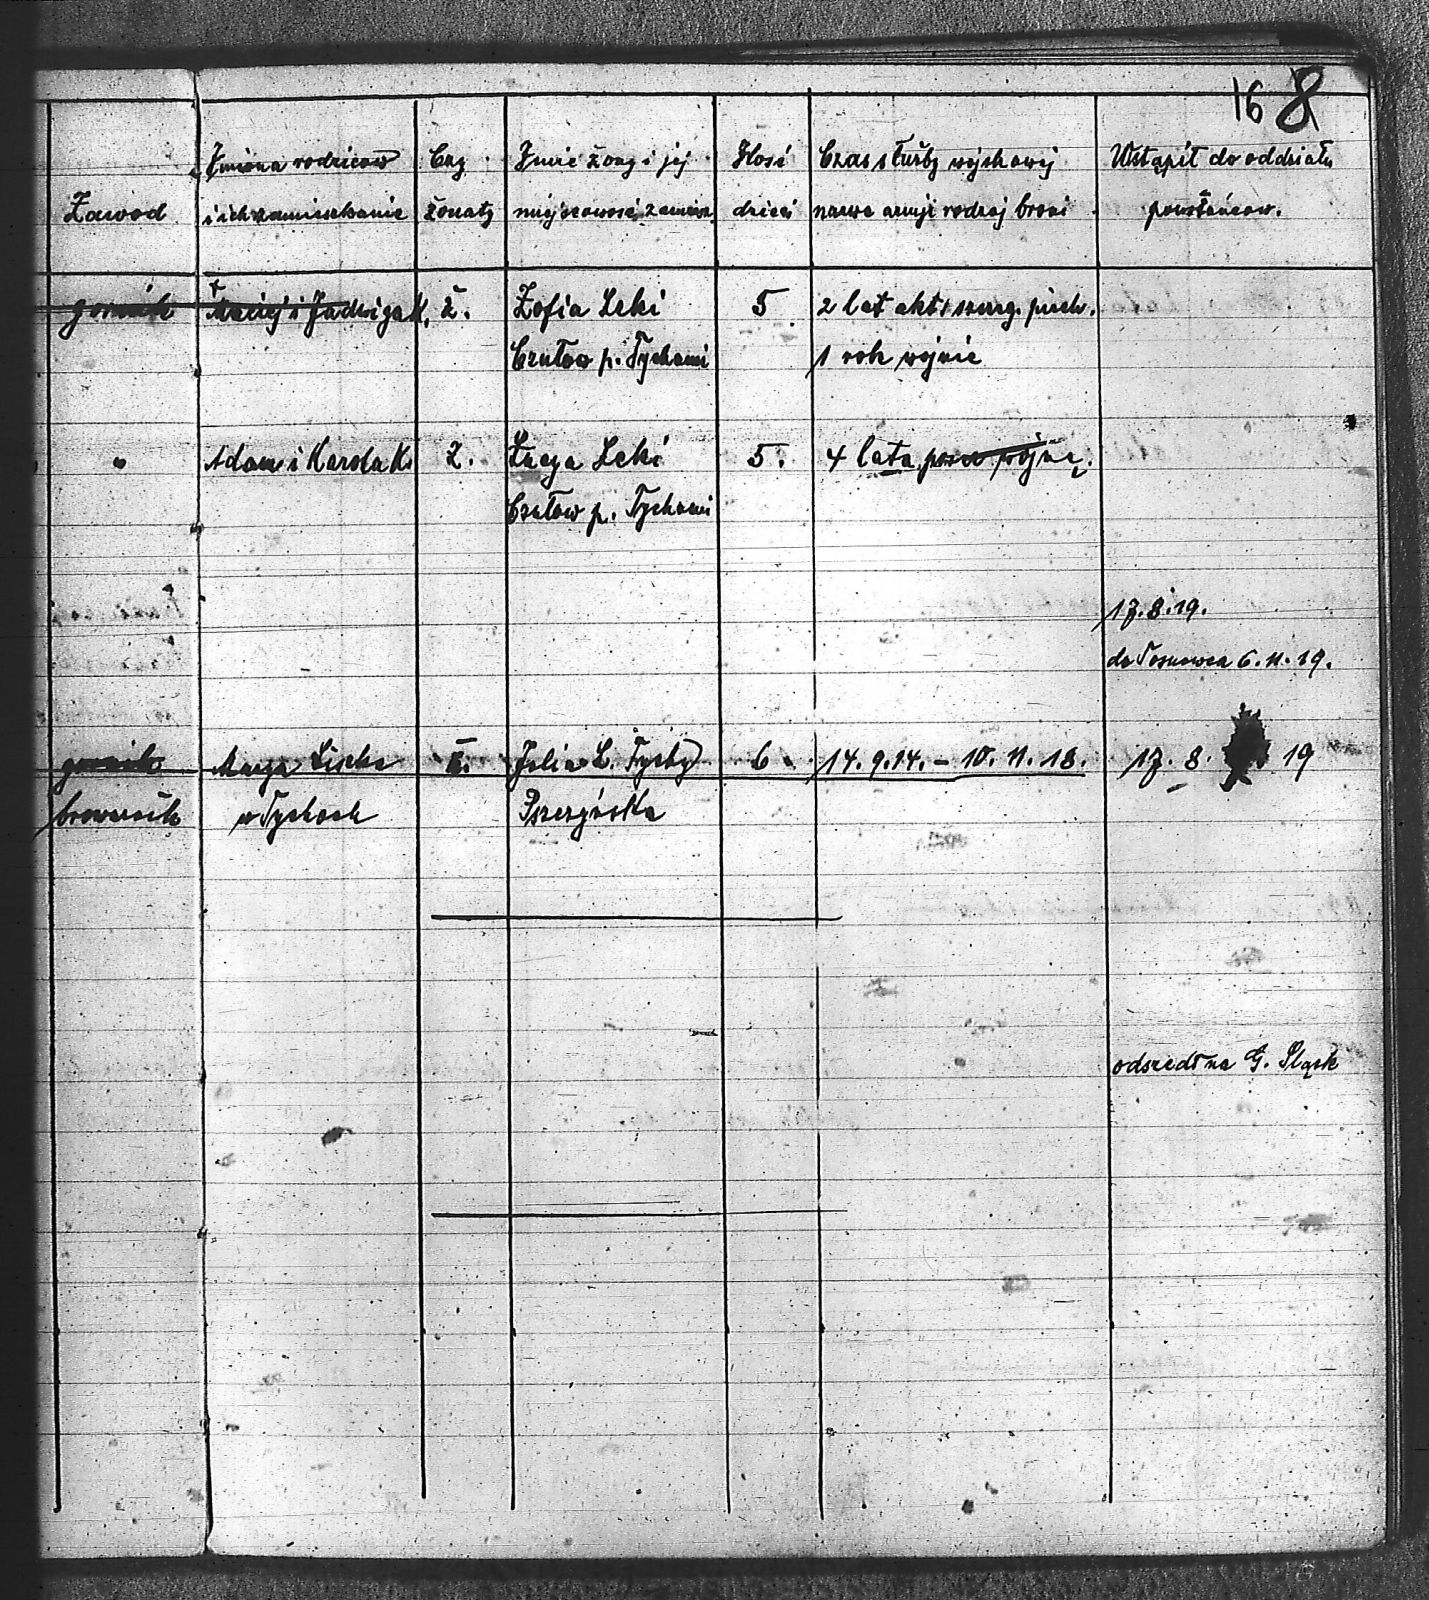 16 8
Zawod
Imiona rodziców
i ich zamieszkanie
Czy
żonaty
Imie żony i jej
miejscowość zamiesz.
Ilosć
dzieci
Czas służby wojskowej
nazwa armji rodzaj broni
Wstąpił do oddziału
powstańców.
gornik
Maciej i Jadwiga K.
ż.
Zofia Leki
5
2 lat akt.
piech.
Czułow p. Tychami
1 rok wojnie
"
Adam i Karola K.
ż.
Leki
5.
4 lata
wojną.
Czułow p. Tychami
17.8.19.
do Sosnowca 6.11.19.
gornik
Liska
ż.
Julia L. Tychy
6
14.9.14. – 10.11.18.
17. 8. 19
w Tychach
odszedł na G. Śląsk